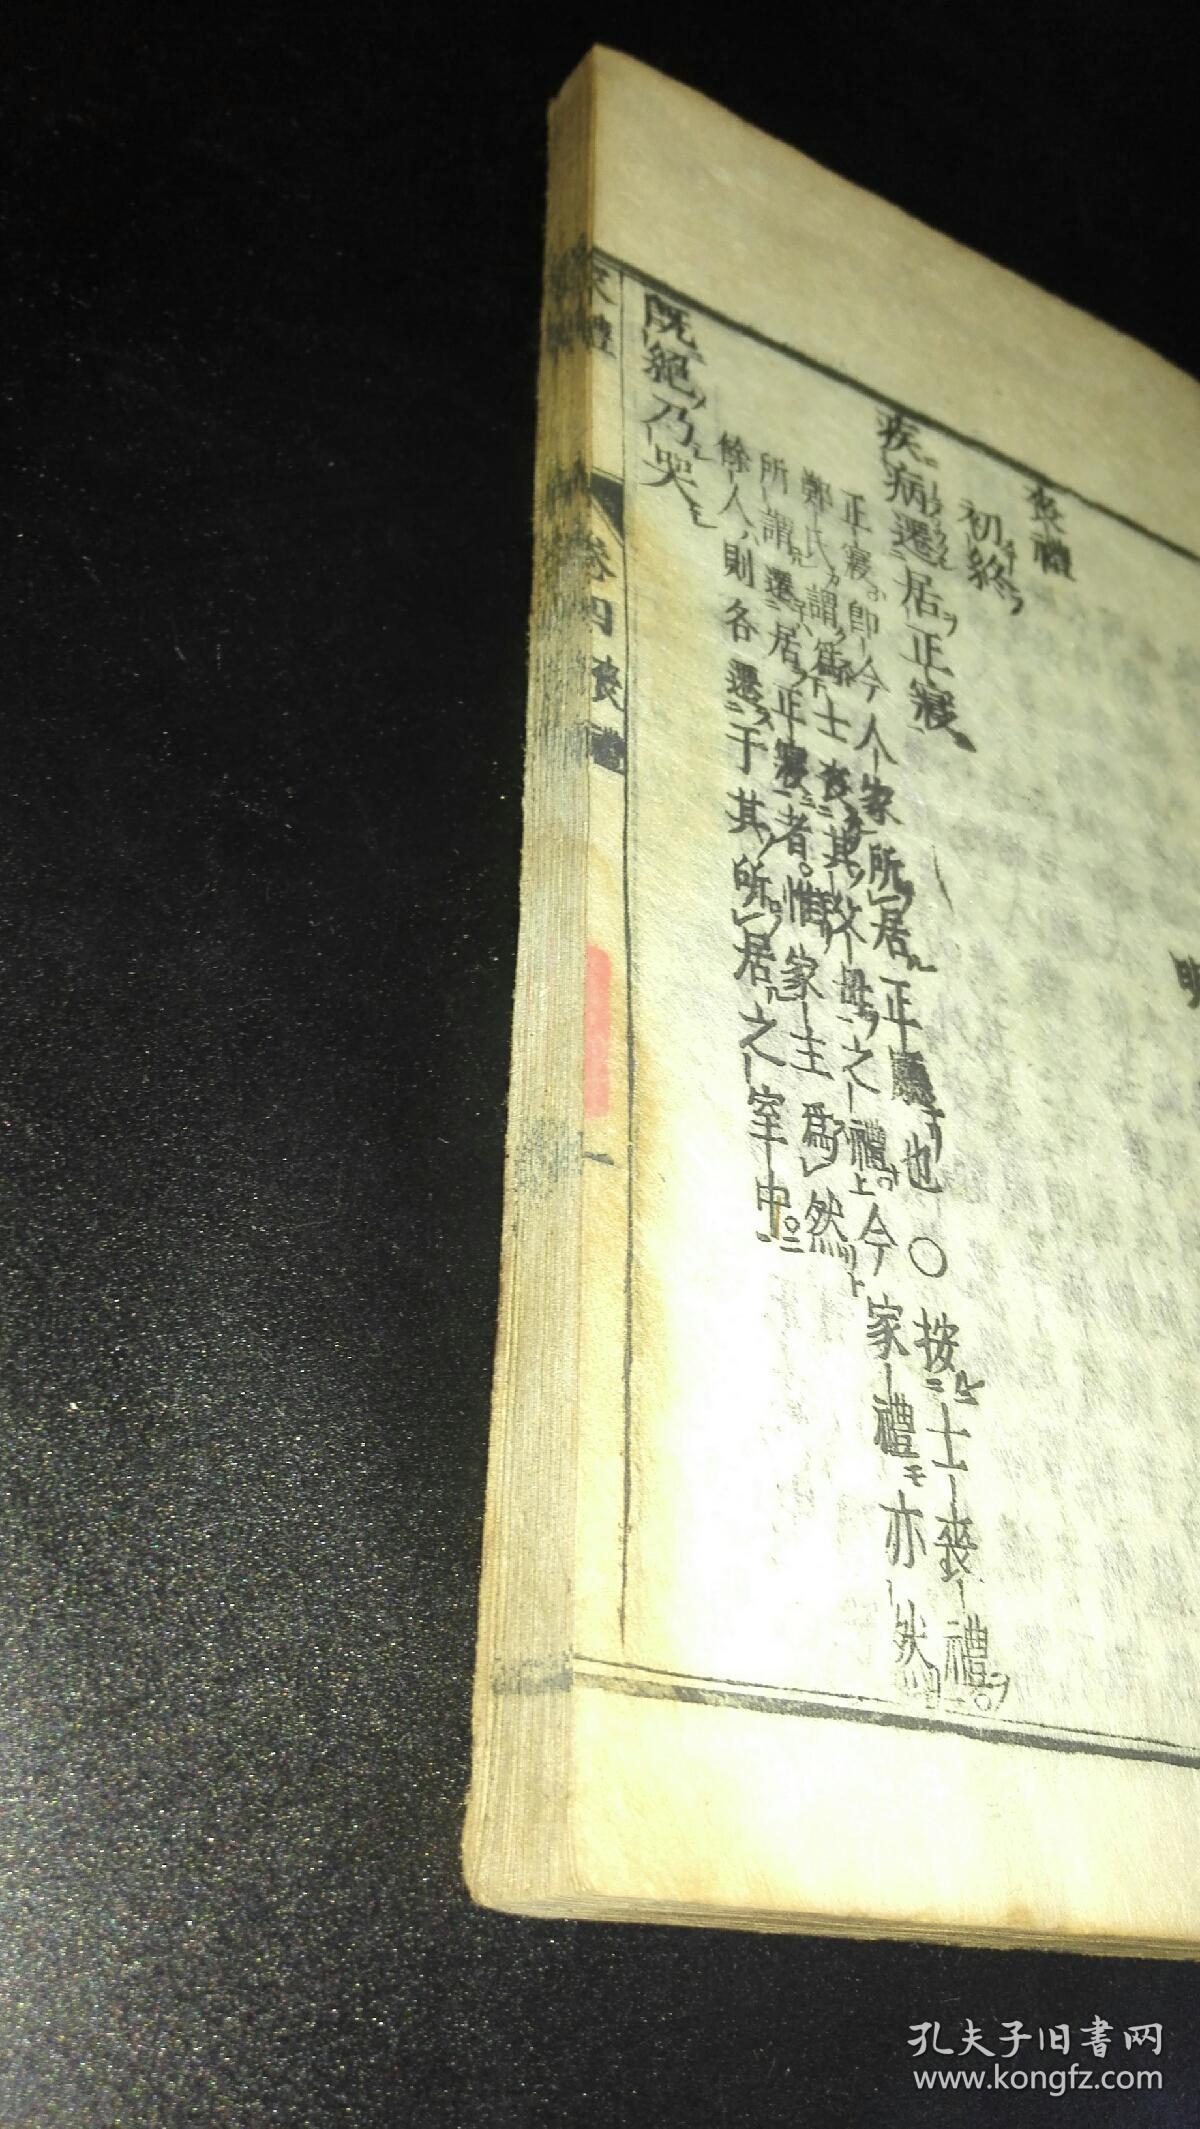 明
喪禮
初終
疾病遷居正寢
正寢即今人家所居正廳也○按士喪禮
鄭氏謂爲士喪其父母之禮今家禮亦然
所謂遷居正寢者惟家主爲然
餘人則各遷于其所居之室中
既絕乃哭
家禮
卷四喪禮
一
孔夫子旧書网
www.kongfz.com